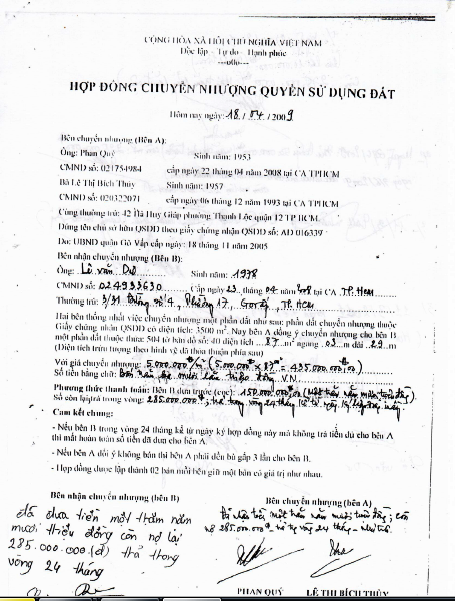 CỘNG HÒA XÃ HỘI CHỦ NGHĨA VIỆT NAM
Độc lập - Tự do - Hạnh phúc
---o0o---
HỢP ĐỒNG CHUYỂN NHƯỢNG QUYỀN SỬ DỤNG ĐẤT
Hôm nay ngày: 18 / 54 / 2009
Bên chuyển nhượng (Bên A):
Ông: Phan Quý Sinh năm: 1953
CMND số: 021754984 cấp ngày 22 tháng 04 năm 2008 tại CA TPHCM
Bà Lê Thị Bích Thủy Sinh năm: 1957
CMND số: 020322071 cấp ngày 06 tháng 12 năm 1993 tại CA TPHCM
Cùng thường trú: 42 Hà Huy Giáp phường Thạnh Lộc quận 12 TP HCM.
Đứng tên chủ sở hữu QSDĐ theo giấy chứng nhận QSDĐ số: AD 016339
Do: UBND quận Gò Vấp cấp ngày: 18 tháng 11 năm 2005
Bên nhận chuyển nhượng (Bên B):
Ông: Lê Văn Sinh năm: 1978
CMND số: 024933630 Cấp ngày 23 tháng 04 năm tại CA TP. HCM
Thường trú: 3/31 số 4, Phường 17, Gò Vấp, TP. HCM
Hai bên thống nhất việc chuyển nhượng một phần đất như sau: phần đất chuyển nhượng thuộc
Giấy chứng nhận QSDĐ có diện tích: 3500 m². Nay bên A đồng ý chuyển nhượng cho bên B
một phần đất thuộc thửa: 504 tờ bản đồ số: 40 diện tích ...87...m² ngang .03..m dài ..29..m
(Diện tích trên tượng theo hình vẽ đã thỏa thuận phía sau)
Với giá chuyển nhượng: 5.000.000đ/m² (5.000.000đ x 87m² = 435.000.000,đ)
Số tiền bằng chữ: Bốn trăm ba mươi lăm triệu đồng V.N
Phương thức thanh toán: Bên B đưa trước (cọc): 150.000.000,đ (Một trăm năm mươi triệu đồng)
Số còn lại trả trong vòng: 285.000.000đ, trả trong vòng 24 tháng kể từ ngày ký hợp đồng này.
- Cam kết chung:
- Nếu bên B trong vòng 24 tháng kể từ ngày ký hợp đồng này mà không trả tiền đủ cho bên A
thì mất hoàn toàn số tiền đã đưa cho bên A.
- Nếu bên A đổi ý không bán thì bên A phải đền bù gấp 3 lần cho bên B.
- Hợp đồng được lập thành 02 bản mỗi bên giữ một bản có giá trị như nhau.
Bên nhận chuyển nhượng (bên B)
đã đưa tiền một trăm năm
mươi triệu đồng còn nợ lại
285.000.000 (đ) trả trong
vòng 24 tháng
Bên chuyển nhượng (bên A)
Đã nhận tiền một trăm năm mươi triệu đồng, còn
nợ 285.000.000đ trả vòng 24 tháng
PHAN QUÝ LÊ THỊ BÍCH THỦY